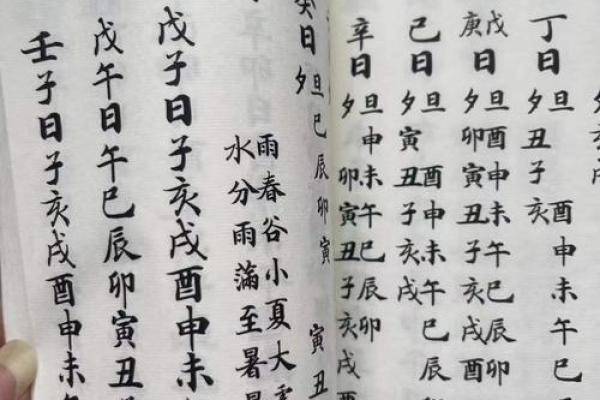 丁日
旦酉申未午巳
夕丑子亥
戊庚日
旦酉申未午巳辰卯
夕卯寅丑子亥戌酉
己日
旦酉申未午巳辰
夕寅丑子亥戌
辛日
旦申未午巳辰卯
夕卯寅丑子亥戌
癸日
旦巳辰卯寅寅丑
夕
雨春谷小夏大
水分雨滿至暑
戊子日子亥戌酉申未
戊午日午巳辰卯寅丑
壬子日子亥戌酉申未